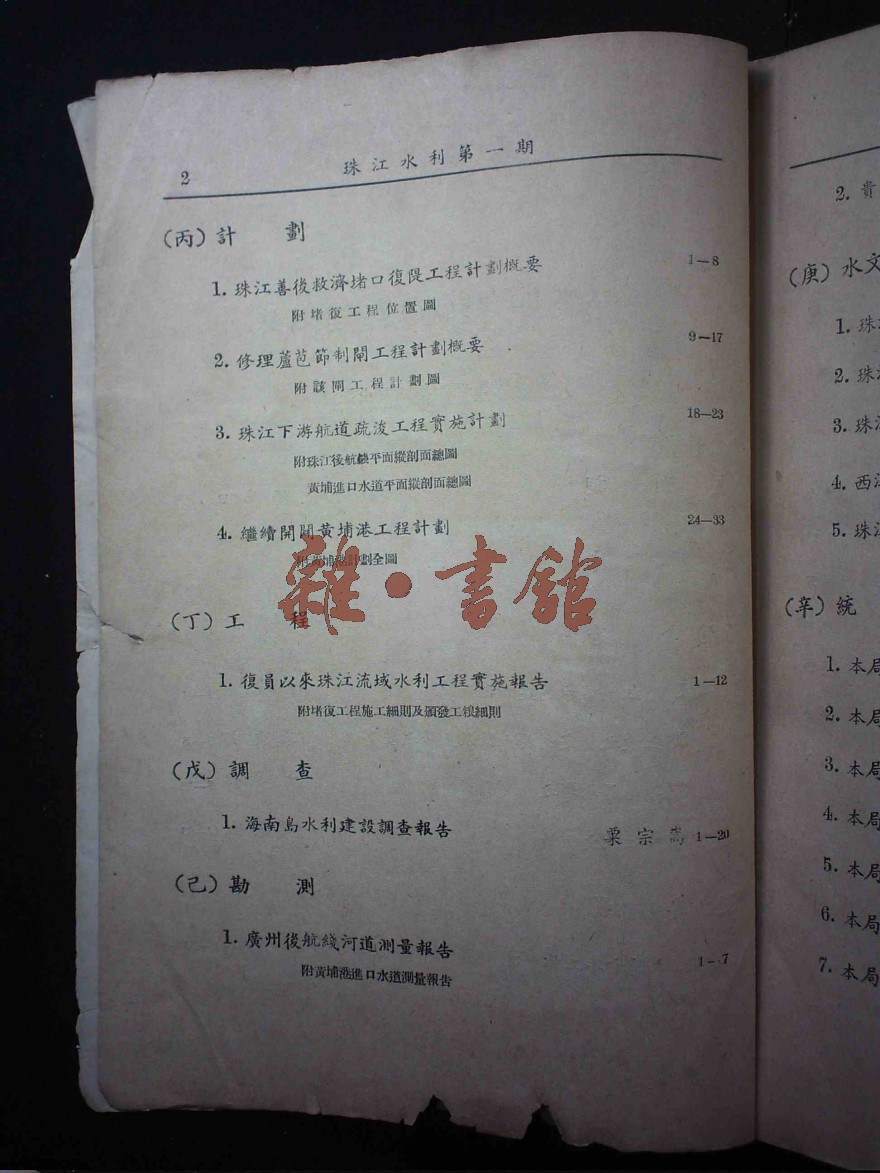 2
珠江水利第一期
(丙) 計 劃
1. 珠江善後救濟堵口復隄工程計劃概要 1—8
附堵復工程位置圖
2. 修理蘆苞節制閘工程計劃概要 9—17
附該閘工程計劃圖
3. 珠江下游航道疏浚工程實施計劃 18—23
附珠江後航綫平面縱剖面總圖
黃埔進口水道平面縱剖面總圖
4. 繼續開闢黃埔港工程計劃 24—33
附黃埔港計劃全圖
雜·書館
(丁) 工 程
1. 復員以來珠江流域水利工程實施報告 1—12
附堵復工程施工細則及頒發工糧細則
(戊) 調 查
1. 海南島水利建設調查報告 粟宗嵩 1—20
(己) 勘 測
1. 廣州後航綫河道測量報告 1—7
附黃埔港進口水道測量報告
2. 貴
(庚) 水文
1. 珠
2. 珠
3. 珠江
4. 西江
5. 珠江
(辛) 統
1. 本局
2. 本局
3. 本局
4. 本局
5. 本局
6. 本局
7. 本局